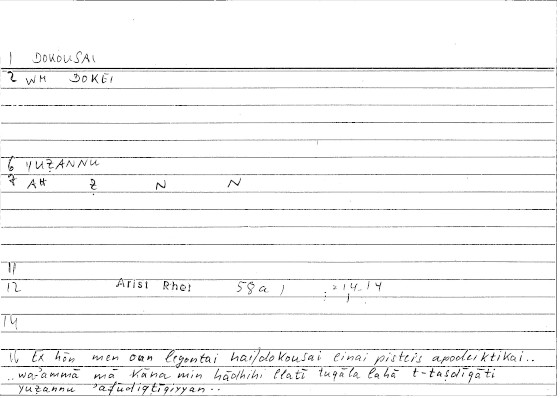 1 DOKOUSAI
2 WH DOKEI
6 YUẒANNU
7 AH Ẓ N N
11
12 Arist Rhet 58a 1 = 14.14
14
16 Ex hōn men oun legontai hai/dokousai einai pisteis apodeiktikai..
..wa-ʾammā mā kāna min hādhihi llatī tuqāla lahā t-taṣdīqāti
yuẓannu ʾafūdīqṭīqiyyan..